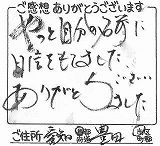 ご感想 ありがとうございます
やっと自分の名前に
自信をもてました
ありがとうございました
ご住所 愛知 都道府県 豊田 市